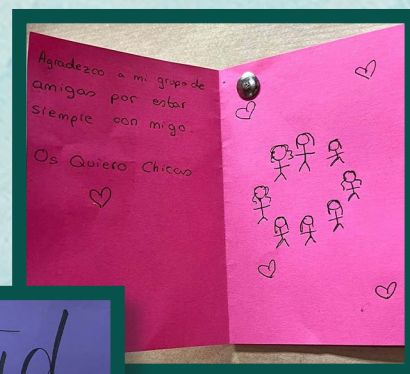 Agradezco a mi grupo de
amigas por estar
siempre con migo.
Os Quiero Chicas